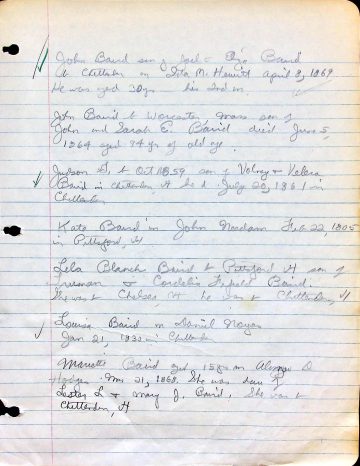 John Baird son of Joel & Eliza Baird
b Chittenden m Ida M. Hewitt April 8, 1869
He was aged 30 yrs his 2nd m.
John Baird b Worcester, Mass son of
John and Sarah E. Baird died June 5,
1864 aged 94 yrs of old age.
Judson D, b Oct 1859 son of Volney & Velera
Baird in Chittenden Vt he d July 20, 1861 in
Chittenden
Kate Baird m John Feb 22, 1805
in Pittsford, Vt
Lela Blanch Baird b Pittsford Vt
Truman & Cordelia Baird.
She was b Chelsea Vt he was b Chittenden, Vt
Louisa Baird m Daniel Noyes
Jan 21, 1830 in Chittenden
Mariette Baird aged 15 yrs m Alonzo D
Hodges. 21, 1868. She was dau of
Lester L & Mary J. Baird. She was b
Chittenden, Vt